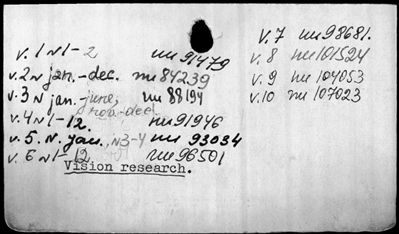 v. 1 N 1-2 пи 91479
v. 2 N jan.-dec. пи 84239
v. 3 N jan.-june, пи 88194
nov.-dec.
v. 4 N 1-12. пи 91946
v. 5. N. jan., N3-4 пи 93034
v. 6 N 1-12 пи 96501
Vision research.
v. 7 пи 98681.
v. 8 пи 101524
v. 9 пи 104053
v. 10 пи 107023